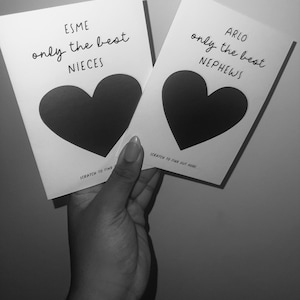 ESME
only the best
NIECES
SCRATCH TO FIND
ARLO
only the best
NEPHEWS
SCRATCH TO FIND OUT MORE